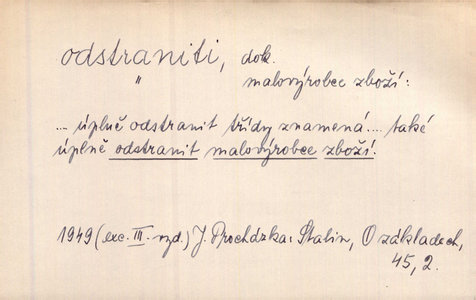 odstraniti, dok.
" malovýrobce zboží:
... úplně odstranit třídy znamená .... také
úplně odstranit malovýrobce zboží.
1949 (exc. III. vyd.) J. Procházka: Stalin, O základech,
45, 2.